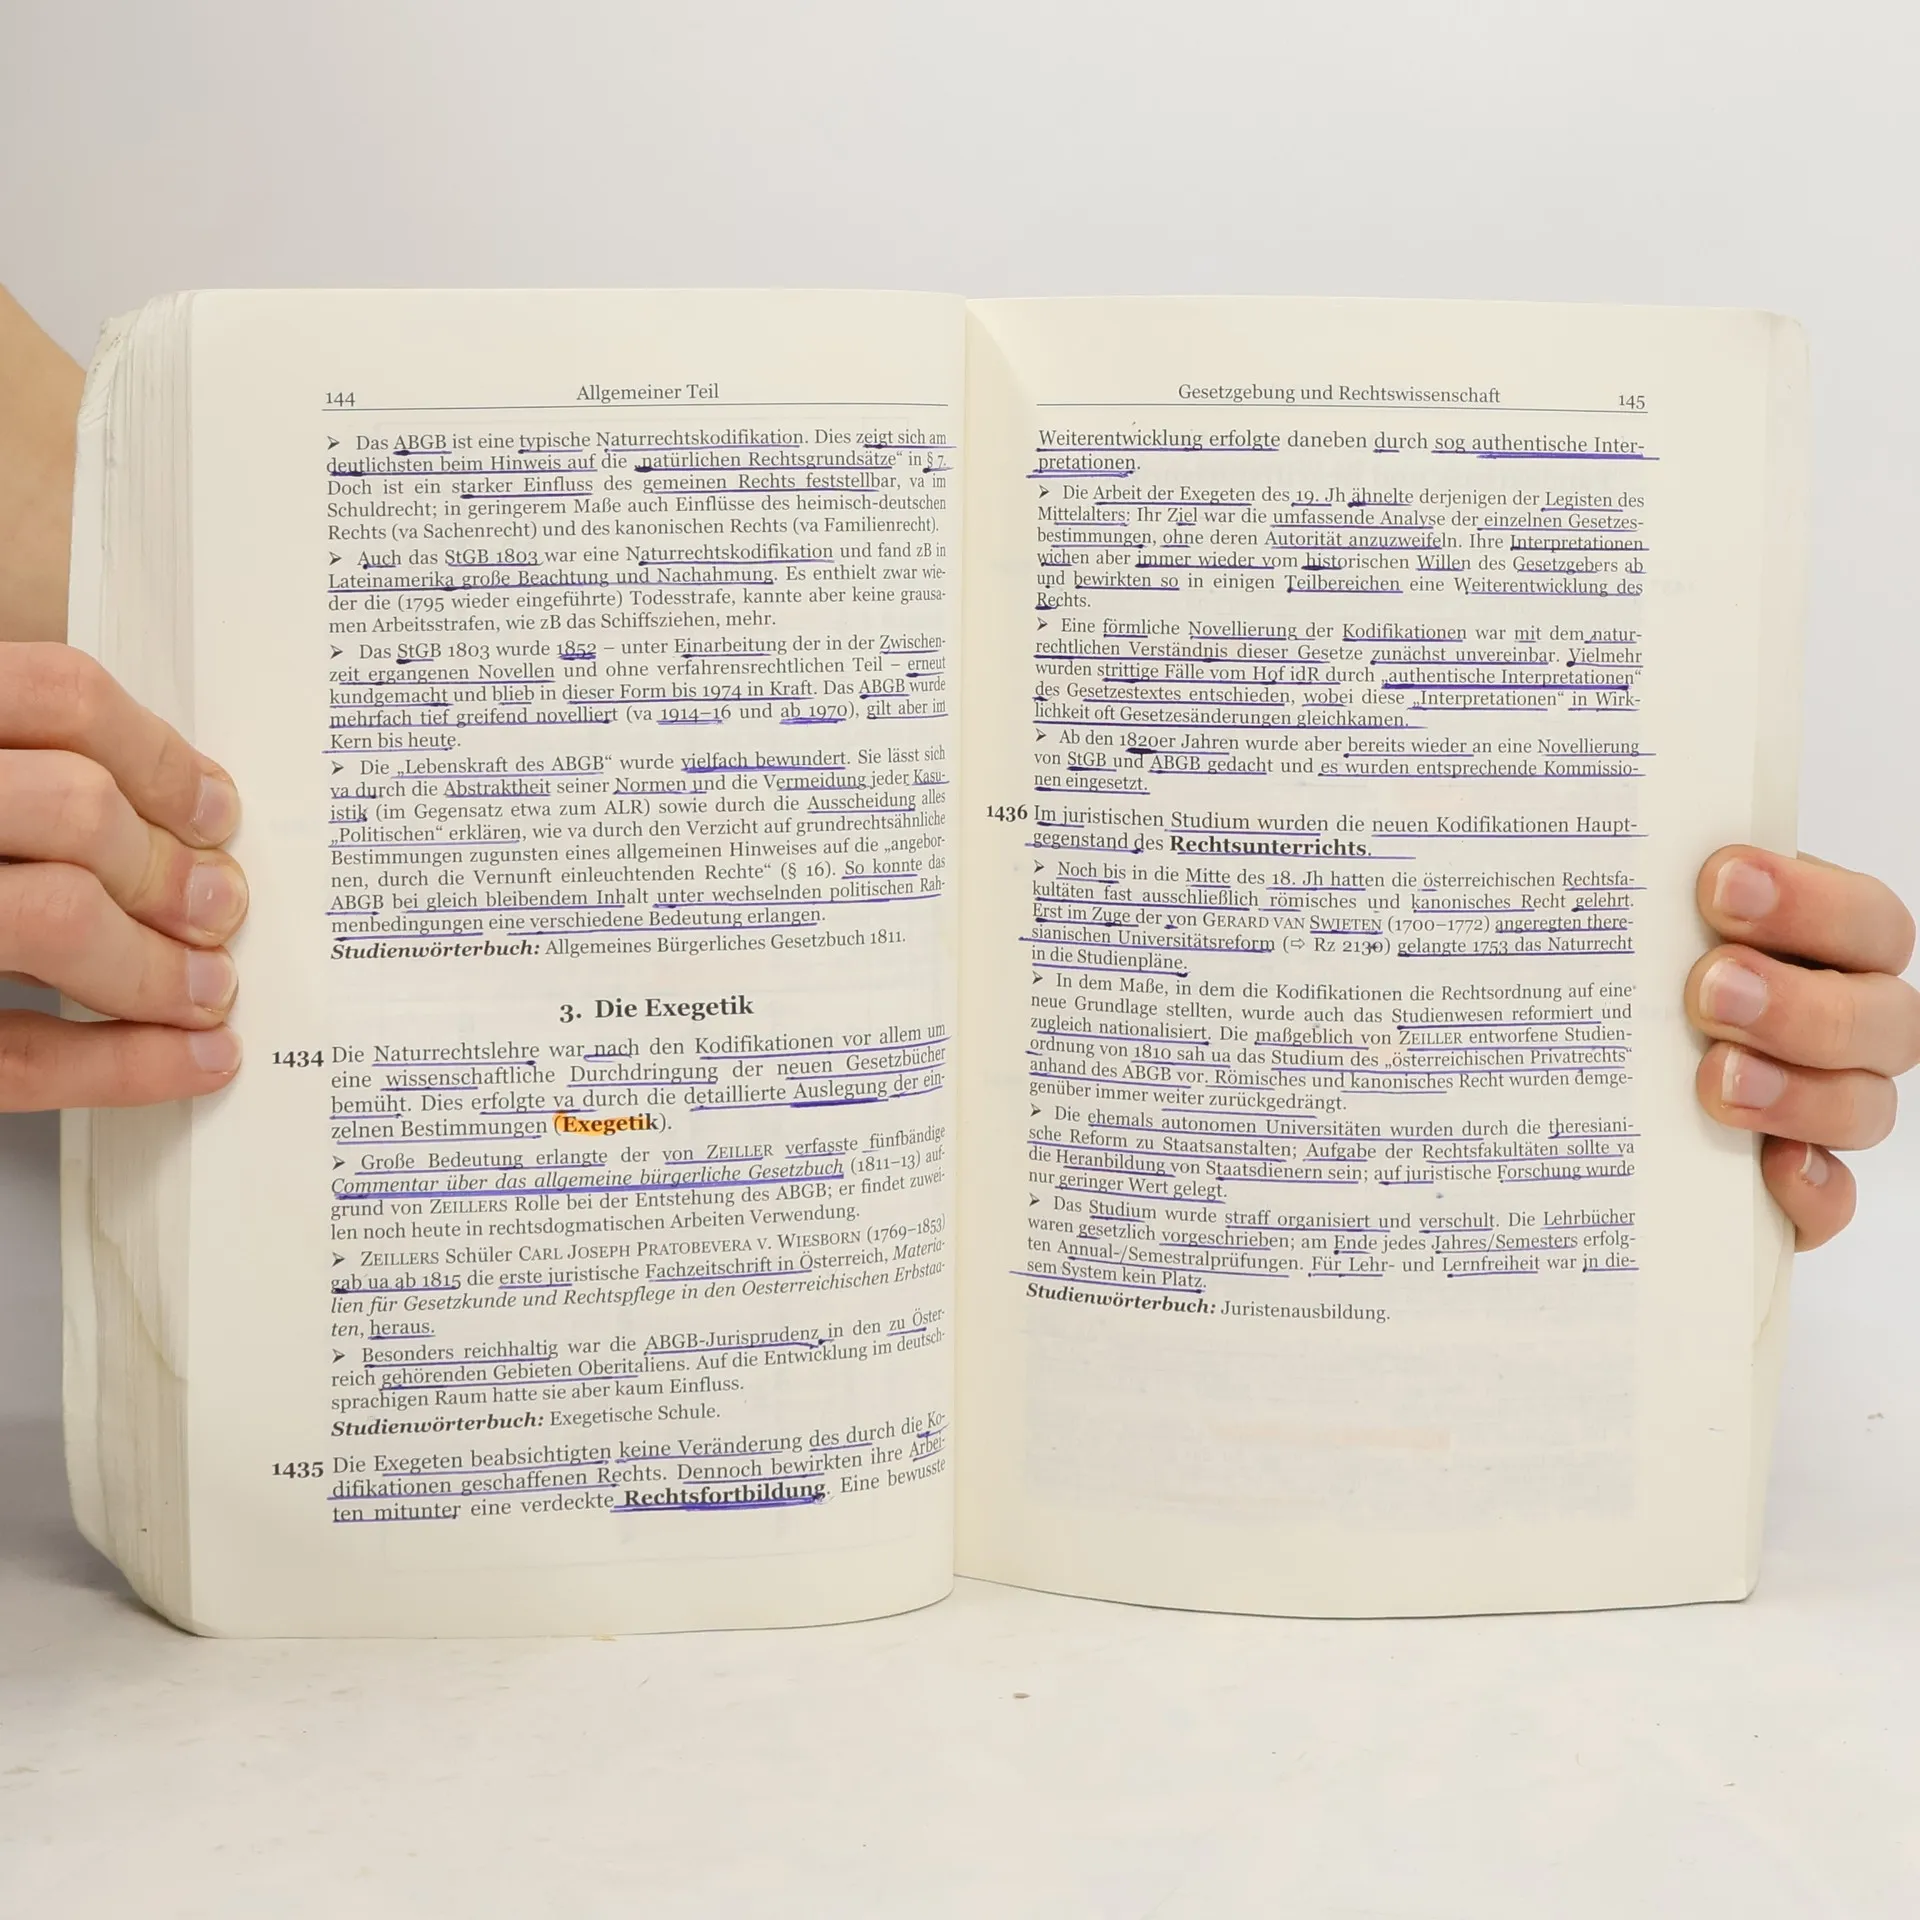 144 Allgemeiner Teil
➢ Das ABGB ist eine typische Naturrechtskodifikation. Dies zeigt sich am
deutlichsten beim Hinweis auf die „natürlichen Rechtsgrundsätze“ in § 7.
Doch ist ein starker Einfluss des gemeinen Rechts feststellbar, va im
Schuldrecht; in geringerem Maße auch Einflüsse des heimisch-deutschen
Rechts (va Sachenrecht) und des kanonischen Rechts (va Familienrecht).
➢ Auch das StGB 1803 war eine Naturrechtskodifikation und fand zB in
Lateinamerika große Beachtung und Nachahmung. Es enthielt zwar wie-
der die (1795 wieder eingeführte) Todesstrafe, kannte aber keine grausa-
men Arbeitsstrafen, wie zB das Schiffsziehen, mehr.
➢ Das StGB 1803 wurde 1852 – unter Einarbeitung der in der Zwischen-
zeit ergangenen Novellen und ohne verfahrensrechtlichen Teil – erneut
kundgemacht und blieb in dieser Form bis 1974 in Kraft. Das ABGB wurde
mehrfach tief greifend novelliert (va 1914–16 und ab 1970), gilt aber im
Kern bis heute.
➢ Die „Lebenskraft des ABGB“ wurde vielfach bewundert. Sie lässt sich
va durch die Abstraktheit seiner Normen und die Vermeidung jeder Kasu-
istik (im Gegensatz etwa zum ALR) sowie durch die Ausscheidung alles
„Politischen“ erklären, wie va durch den Verzicht auf grundrechtsähnliche
Bestimmungen zugunsten eines allgemeinen Hinweises auf die „angebor-
nen, durch die Vernunft einleuchtenden Rechte“ (§ 16). So konnte das
ABGB bei gleich bleibendem Inhalt unter wechselnden politischen Rah-
menbedingungen eine verschiedene Bedeutung erlangen.
Studienwörterbuch: Allgemeines Bürgerliches Gesetzbuch 1811.
3. Die Exegetik
1434 Die Naturrechtslehre war nach den Kodifikationen vor allem um
eine wissenschaftliche Durchdringung der neuen Gesetzbücher
bemüht. Dies erfolgte va durch die detaillierte Auslegung der ein-
zelnen Bestimmungen (Exegetik).
➢ Große Bedeutung erlangte der von ZEILLER verfasste fünfbändige
Commentar über das allgemeine bürgerliche Gesetzbuch (1811–13) auf-
grund von ZEILLERS Rolle bei der Entstehung des ABGB; er findet zuwei-
len noch heute in rechtsdogmatischen Arbeiten Verwendung.
➢ ZEILLERS Schüler CARL JOSEPH PRATOBEVERA V. WIESBORN (1769–1853)
gab ua ab 1815 die erste juristische Fachzeitschrift in Österreich, Materia-
lien für Gesetzkunde und Rechtspflege in den Oesterreichischen Erbstaa-
ten, heraus.
➢ Besonders reichhaltig war die ABGB-Jurisprudenz in den zu Öster-
reich gehörenden Gebieten Oberitaliens. Auf die Entwicklung im deutsch-
sprachigen Raum hatte sie aber kaum Einfluss.
Studienwörterbuch: Exegetische Schule.
1435 Die Exegeten beabsichtigten keine Veränderung des durch die Ko-
difikationen geschaffenen Rechts. Dennoch bewirkten ihre Arbei-
ten mitunter eine verdeckte Rechtsfortbildung. Eine bewusste
Gesetzgebung und Rechtswissenschaft 145
Weiterentwicklung erfolgte daneben durch sog authentische Inter-
pretationen.
➢ Die Arbeit der Exegeten des 19. Jh ähnelte derjenigen der Legisten des
Mittelalters: Ihr Ziel war die umfassende Analyse der einzelnen Gesetzes-
bestimmungen, ohne deren Autorität anzuzweifeln. Ihre Interpretationen
wichen aber immer wieder vom historischen Willen des Gesetzgebers ab
und bewirkten so in einigen Teilbereichen eine Weiterentwicklung des
Rechts.
➢ Eine förmliche Novellierung der Kodifikationen war mit dem natur-
rechtlichen Verständnis dieser Gesetze zunächst unvereinbar. Vielmehr
wurden strittige Fälle vom Hof idR durch „authentische Interpretationen“
des Gesetzestextes entschieden, wobei diese „Interpretationen“ in Wirk-
lichkeit oft Gesetzesänderungen gleichkamen.
➢ Ab den 1820er Jahren wurde aber bereits wieder an eine Novellierung
von StGB und ABGB gedacht und es wurden entsprechende Kommissio-
nen eingesetzt.
1436 Im juristischen Studium wurden die neuen Kodifikationen Haupt-
gegenstand des Rechtsunterrichts.
➢ Noch bis in die Mitte des 18. Jh hatten die österreichischen Rechtsfa-
kultäten fast ausschließlich römisches und kanonisches Recht gelehrt.
Erst im Zuge der von GERARD VAN SWIETEN (1700–1772) angeregten there-
sianischen Universitätsreform (⇨ Rz 2130) gelangte 1753 das Naturrecht
in die Studienpläne.
➢ In dem Maße, in dem die Kodifikationen die Rechtsordnung auf eine
neue Grundlage stellten, wurde auch das Studienwesen reformiert und
zugleich nationalisiert. Die maßgeblich von ZEILLER entworfene Studien-
ordnung von 1810 sah ua das Studium des „österreichischen Privatrechts“
anhand des ABGB vor. Römisches und kanonisches Recht wurden demge-
genüber immer weiter zurückgedrängt.
➢ Die ehemals autonomen Universitäten wurden durch die theresiani-
sche Reform zu Staatsanstalten; Aufgabe der Rechtsfakultäten sollte va
die Heranbildung von Staatsdienern sein; auf juristische Forschung wurde
nur geringer Wert gelegt.
➢ Das Studium wurde straff organisiert und verschult. Die Lehrbücher
waren gesetzlich vorgeschrieben; am Ende jedes Jahres/Semesters erfolg-
ten Annual-/Semestralprüfungen. Für Lehr- und Lernfreiheit war in die-
sem System kein Platz.
Studienwörterbuch: Juristenausbildung.